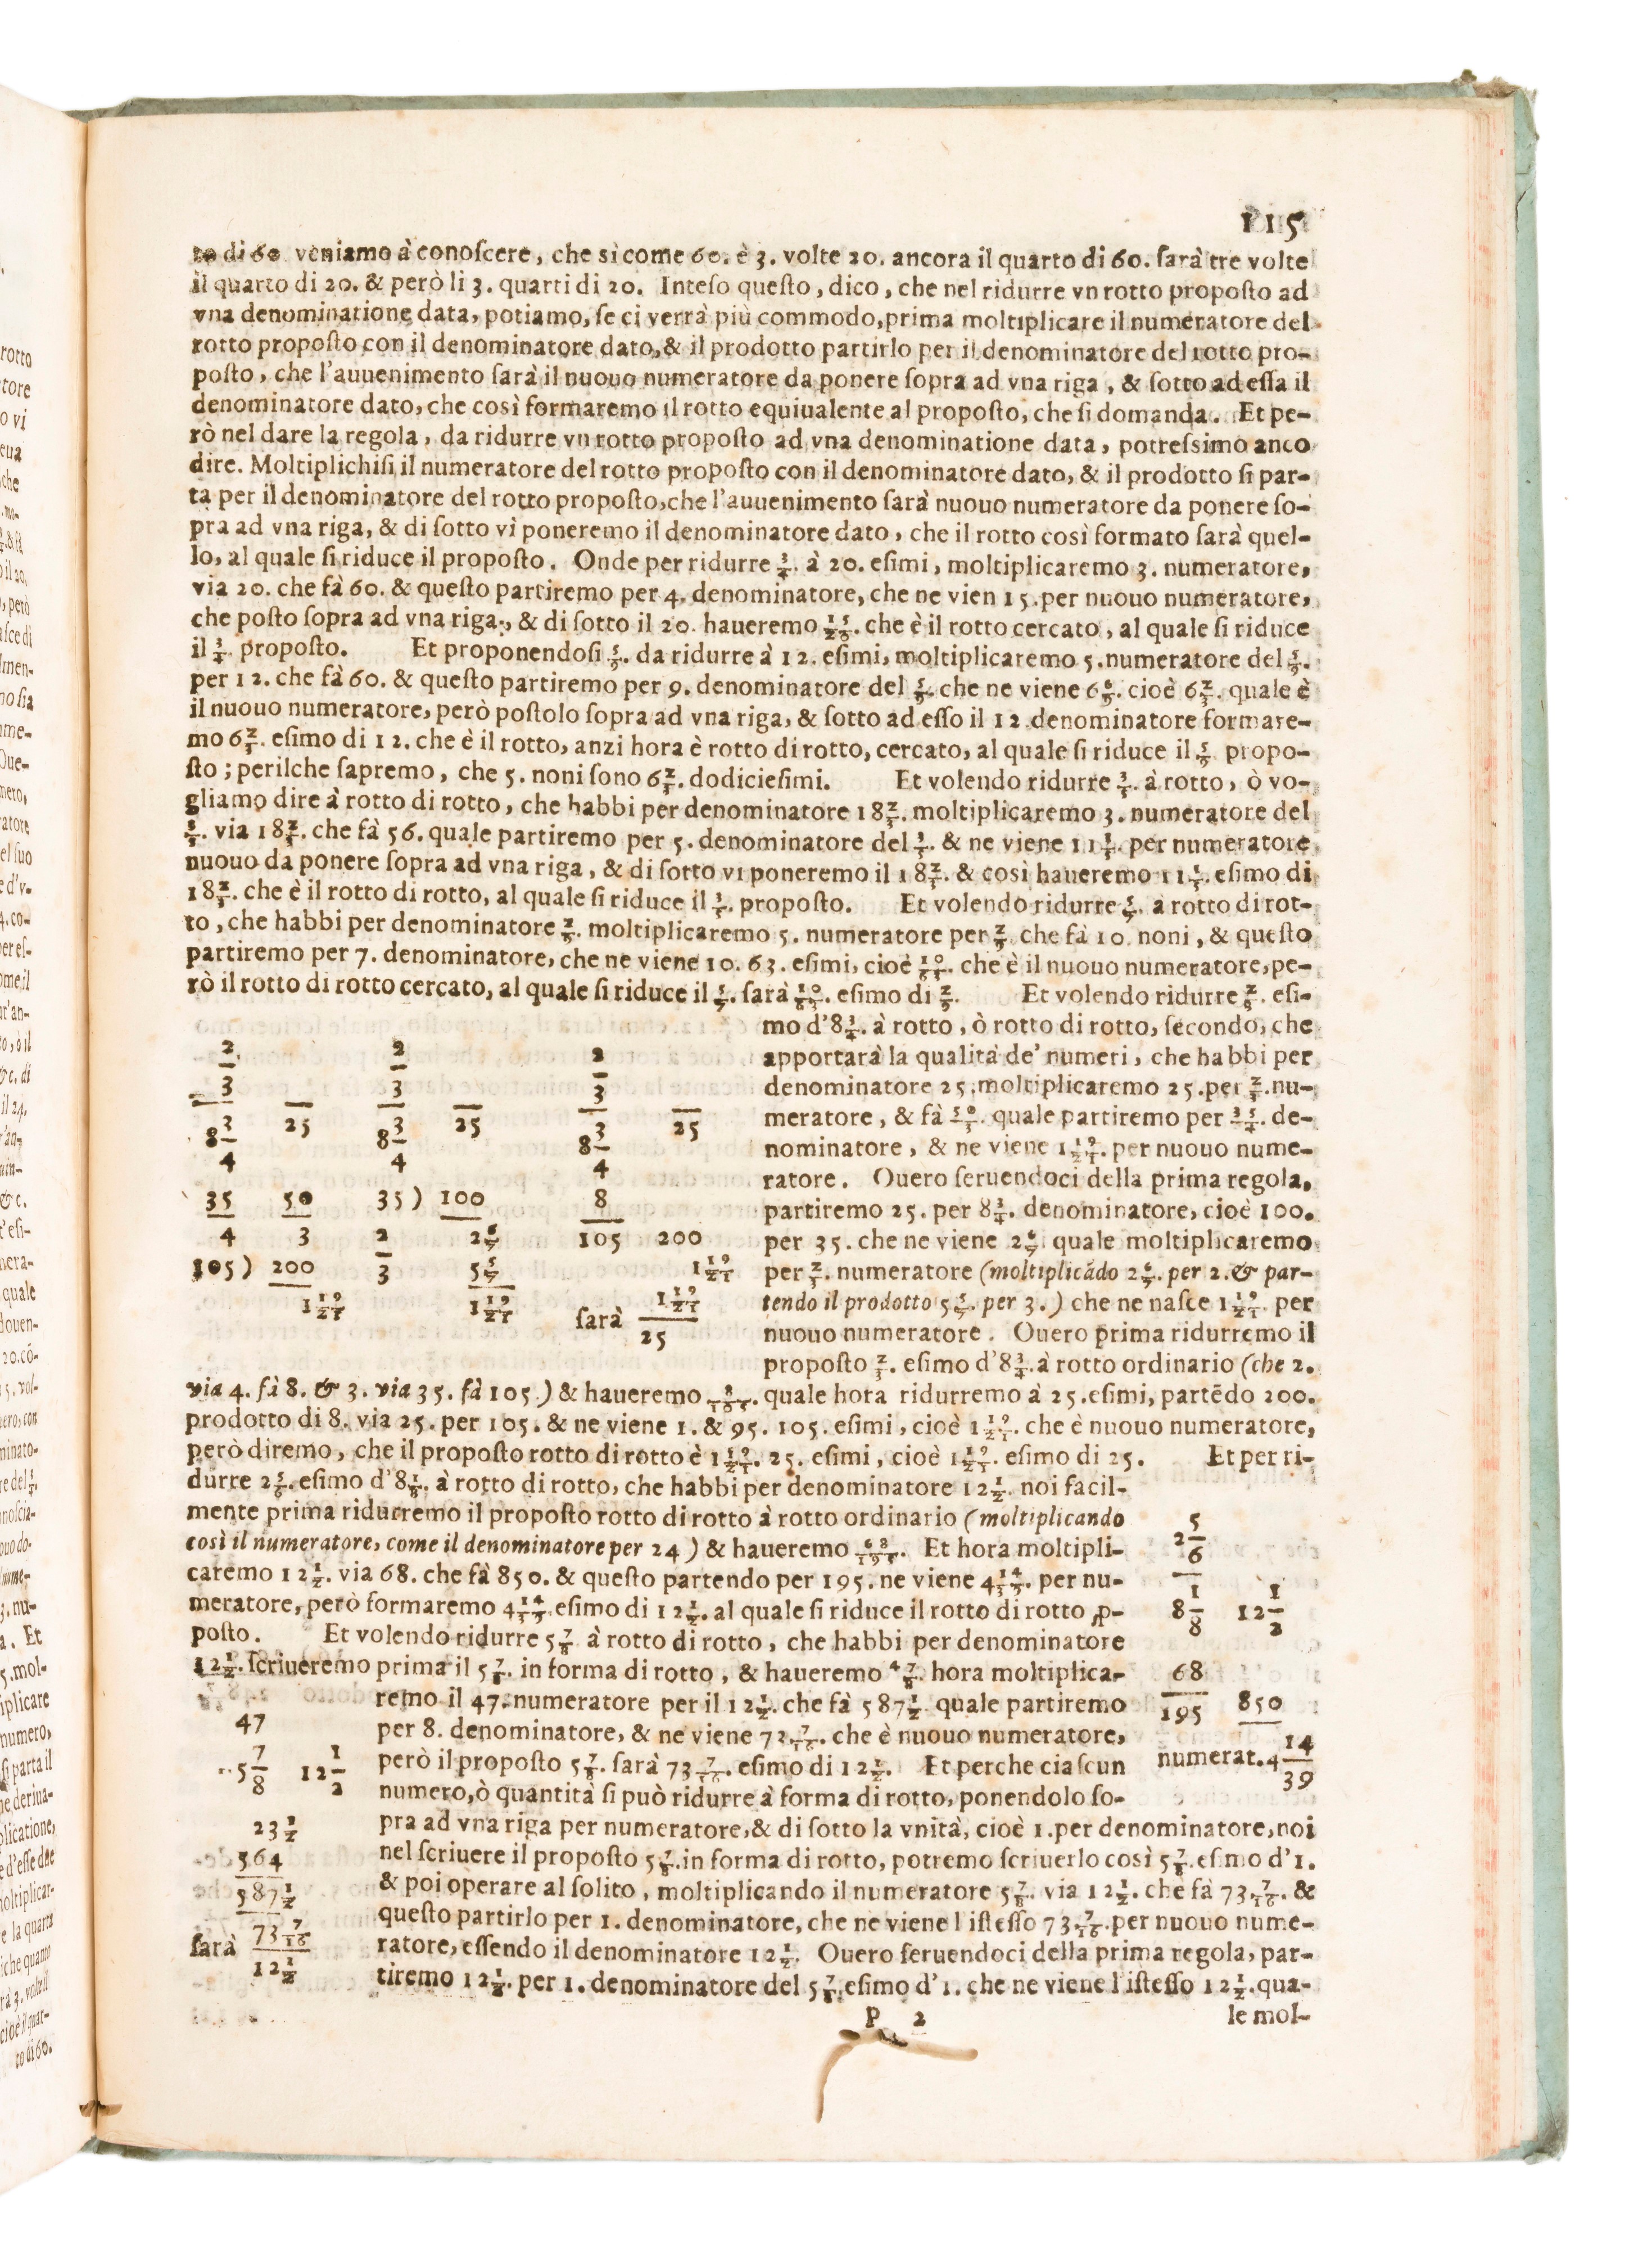 115
to di 60 veniamo à conoſcere, che sì come 60. è 3. volte 20. ancora il quarto di 60. ſarà tre volte
il quarto di 20. & però li 3. quarti di 20. Inteſo queſto, dico, che nel ridurre vn rotto propoſto ad
vna denominatione data, potiamo, ſe ci verrà più commodo, prima moltiplicare il numeratore del
rotto propoſto con il denominatore dato, & il prodotto partirlo per il denominatore del rotto pro-
poſto, che l'auuenimento ſarà il nuouo numeratore da ponere ſopra ad vna riga, & ſotto ad eſſa il
denominatore dato, che così formaremo il rotto equiualente al propoſto, che ſi domanda. Et pe-
rò nel dare la regola, da ridurre vn rotto propoſto ad vna denominatione data, potreſsimo anco
dire. Moltiplichiſi il numeratore del rotto propoſto con il denominatore dato, & il prodotto ſi par-
ta per il denominatore del rotto propoſto, che l'auuenimento ſarà nuouo numeratore da ponere ſo-
pra ad vna riga, & di ſotto vi poneremo il denominatore dato, che il rotto così formato ſarà quel-
lo, al quale ſi riduce il propoſto. Onde per ridurre 3/4. à 20. eſimi, moltiplicaremo 3. numeratore,
via 20. che fà 60. & queſto partiremo per 4. denominatore, che ne vien 15. per nuouo numeratore,
che poſto ſopra ad vna riga, & di ſotto il 20. haueremo 15/20. che è il rotto cercato, al quale ſi riduce
il 3/4. propoſto. Et proponendoſi 5/9. da ridurre à 12. eſimi, moltiplicaremo 5. numeratore del 5/9.
per 12. che fà 60. & queſto partiremo per 9. denominatore del 5/9. che ne viene 6 6/9. cioè 6 2/3. quale è
il nuouo numeratore, però poſtolo ſopra ad vna riga, & ſotto ad eſſo il 12 denominatore formare-
mo 6 2/3. eſimo di 12. che è il rotto, anzi hora è rotto di rotto, cercato, al quale ſi riduce il 5/9. propo-
ſto; perilche ſapremo, che 5. noni ſono 6 2/3. dodicieſimi. Et volendo ridurre 3/5. à rotto, ò vo-
gliamo dire à rotto di rotto, che habbi per denominatore 18 2/3. moltiplicaremo 3. numeratore del
3/5. via 18 2/3. che fà 56. quale partiremo per 5. denominatore del 3/5. & ne viene 11 1/5. per numeratore
nuouo da ponere ſopra ad vna riga, & di ſotto vi poneremo il 18 2/3. & così haueremo 11 1/5. eſimo di
18 2/3. che è il rotto di rotto, al quale ſi riduce il 3/5. propoſto. Et volendo ridurre 5/7. à rotto di rot-
to, che habbi per denominatore 2/9. moltiplicaremo 5. numeratore per 2/9. che fà 10. noni, & queſto
partiremo per 7. denominatore, che ne viene 10. 63. eſimi, cioè 10/63. che è il nuouo numeratore, pe-
rò il rotto di rotto cercato, al quale ſi riduce il 5/7. ſarà 10/63. eſimo di 2/9. Et volendo ridurre 2/3. eſi-
mo d'8 3/4. à rotto, ò rotto di rotto, ſecondo, che
apportarà la qualità de' numeri, che habbi per
denominatore 25. moltiplicaremo 25. per 2/3. nu-
meratore, & fà 50/3. quale partiremo per 35/4. de-
nominatore, & ne viene 1 19/21. per nuouo nume-
ratore. Ouero ſeruendoci della prima regola,
partiremo 25. per 8 3/4. denominatore, cioè 100.
per 35. che ne viene 2 6/7. quale moltiplicaremo
per 2/3. numeratore (moltiplicãdo 2 6/7. per 2. & par-
tendo il prodotto 5 5/7. per 3.) che ne naſce 1 19/21. per
nuouo numeratore. Ouero prima ridurremo il
propoſto 2/3. eſimo d'8 3/4. à rotto ordinario (che 2.
2/3 2/3 2/3
8 3/4 25 8 3/4 25 8 3/4 25
35/4 50/3 35) 100 8/105 200
2/3 2 6/7
105) 200 5 5/7 1 19/21
1 19/21 1 19/21 ſarà 1 19/21
25
via 4. fà 8. & 3. via 35. fà 105.) & haueremo 8/105. quale hora ridurremo à 25. eſimi, partẽdo 200.
prodotto di 8. via 25. per 105. & ne viene 1. & 95. 105. eſimi, cioè 1 19/21. che è nuouo numeratore,
però diremo, che il propoſto rotto di rotto è 1 19/21. 25. eſimi, cioè 1 19/21. eſimo di 25. Et per ri-
durre 2 5/6. eſimo d'8 1/8. à rotto di rotto, che habbi per denominatore 12 1/2. noi facil-
mente prima ridurremo il propoſto rotto di rotto à rotto ordinario (moltiplicando
così il numeratore, come il denominatore per 24) & haueremo 68/195. Et hora moltipli-
caremo 12 1/2. via 68. che fà 850. & queſto partendo per 195. ne viene 4 14/39. per nu-
meratore, però formaremo 4 14/39. eſimo di 12 1/2. al quale ſi riduce il rotto di rotto ꝓp-
poſto. Et volendo ridurre 5 7/8 à rotto di rotto, che habbi per denominatore
12 1/2. ſcriueremo prima il 5 7/8. in forma di rotto, & haueremo 47/8. hora moltiplica-
remo il 47. numeratore per il 12 1/2. che fà 587 1/2. quale partiremo
per 8. denominatore, & ne viene 73 7/16. che è nuouo numeratore,
però il propoſto 5 7/8. ſarà 73 7/16. eſimo di 12 1/2. Et perche ciaſcun
numero, ò quantità ſi può ridurre à forma di rotto, ponendolo ſo-
pra ad vna riga per numeratore, & di ſotto la vnità, cioè 1. per denominatore, noi
nel ſcriuere il propoſto 5 7/8. in forma di rotto, potremo ſcriuerlo così 5 7/8. eſimo d'1.
& poi operare al ſolito, moltiplicando il numeratore 5 7/8. via 12 1/2. che fà 73 7/16. &
queſto partirlo per 1. denominatore, che ne viene l'iſteſſo 73 7/16. per nuouo nume-
ratore, eſſendo il denominatore 12 1/2. Ouero ſeruendoci della prima regola, par-
tiremo 12 1/2. per 1. denominatore del 5 7/8. eſimo d'1. che ne viene l'iſteſſo 12 1/2. qua-
2 5/6
8 1/8 12 1/2
68
195 850
numerat. 4 14/39
47
5 7/8 12 1/2
23 1/2
564
587 1/2
ſarà 73 7/16
12 1/2
P 2
le mol-